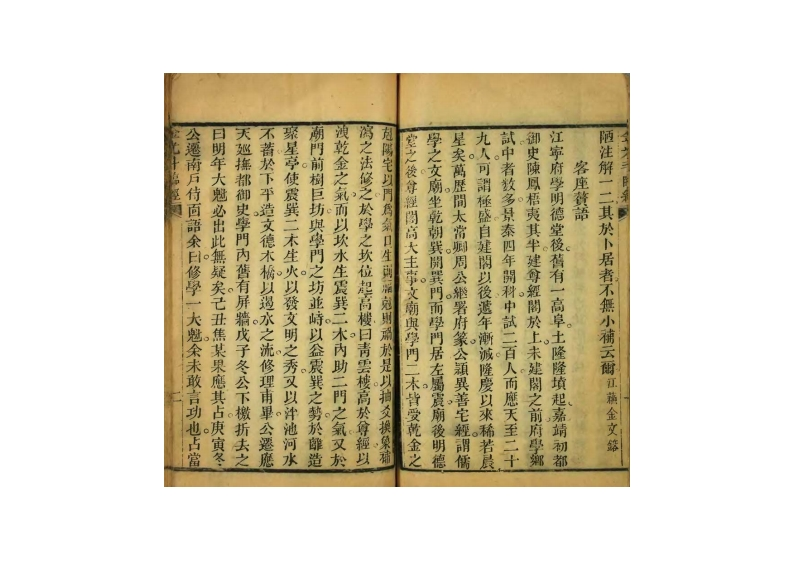 陋注解一二其於卜居者不無小補云爾江 金文
客座贅語
江寧府學明德堂後舊有一高阜土隆隆墳起嘉靖初都
御史陳鳳梧夷其半建尊經閣於上未建閣之前府學鄉
試中者數多景泰四年開科中試二百人而應天至二十
九人可謂極盛自建閣以後遞年漸減隆慶以來稀若晨
星矣萬歷間太常卿周公繼署府篆公頴異善宅經謂儒
學之文廟坐乾朝巽開巽門而學門居左屬震廟後明德
堂之後尊經閣高大主事文廟與學門二木皆受乾金之
尅陽宅以門爲氣口生則福尅則禍於是以抽爻換象補
瀉之法修之於學之坎位起高樓曰青雲樓高於尊經以
洩乾金之氣而以坎水生震巽二木內助二門之氣又於
廟門前樹巨坊與學門之坊並峙以益震巽之勢於離造
聚星亭使震巽二木生火以發文明之秀又以泮池河水
不蓄於下平造文德木橋以遏水之流修理甫畢公遷應
天廵撫都御史學門內舊有屏牆戊子冬公下檄拆去之
曰明年大魁必出此無疑矣己丑焦某果應其占庚寅冬
公遷南戶侍面語余曰修學一大魁余未敢言功也占當
二